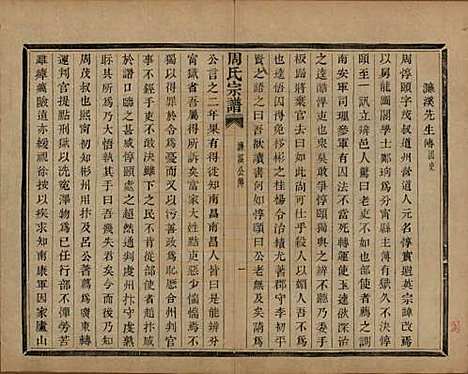 濂溪先生傳國史
周惇頤字茂叔道州營道人元名惇實避英宗諱改焉
以舅龍圖學士鄭珦爲分寧主簿有獄久不決惇
頤至一訊立辨邑人驚曰老吏不如也部使者薦之調
南安軍司理參軍有囚法不當死轉運使王逵欲深治
之逵酷悍吏也衆莫敢爭惇頤獨與之辨不聽乃委手
板歸將棄官去曰如此尚可仕乎殺人以媚人吾不爲
也逵悟囚得免移郴之桂陽令治績尤著郡守李初平
賢之語之曰吾欲讀書何如惇頤曰公老無及矣請爲
公言之二年果有得徙知南昌南昌人皆曰是能辨分
寧獄者吾屬得所訴矣富家大姓黠吏惡少惴惴焉不
獨以得罪於令爲憂而又以汚穢善政爲恥歷合州判官
事不經手吏不敢決雖下之民不肯從部使者趙抃惑
於譖口臨之甚威惇頤處之超然通判虔州抃守虔熟
視其所爲乃大悟執其手曰吾幾失君矣今而後乃知
周茂叔也熙寧初知郴州用抃及呂公著薦爲廣東轉
運判官提點刑獄以洗冤澤物爲己任行部不憚勞苦
雖瘴癘險遠亦緩視徐按以疾求知南康軍因家廬山
周氏宗譜
濂溪公傳
一